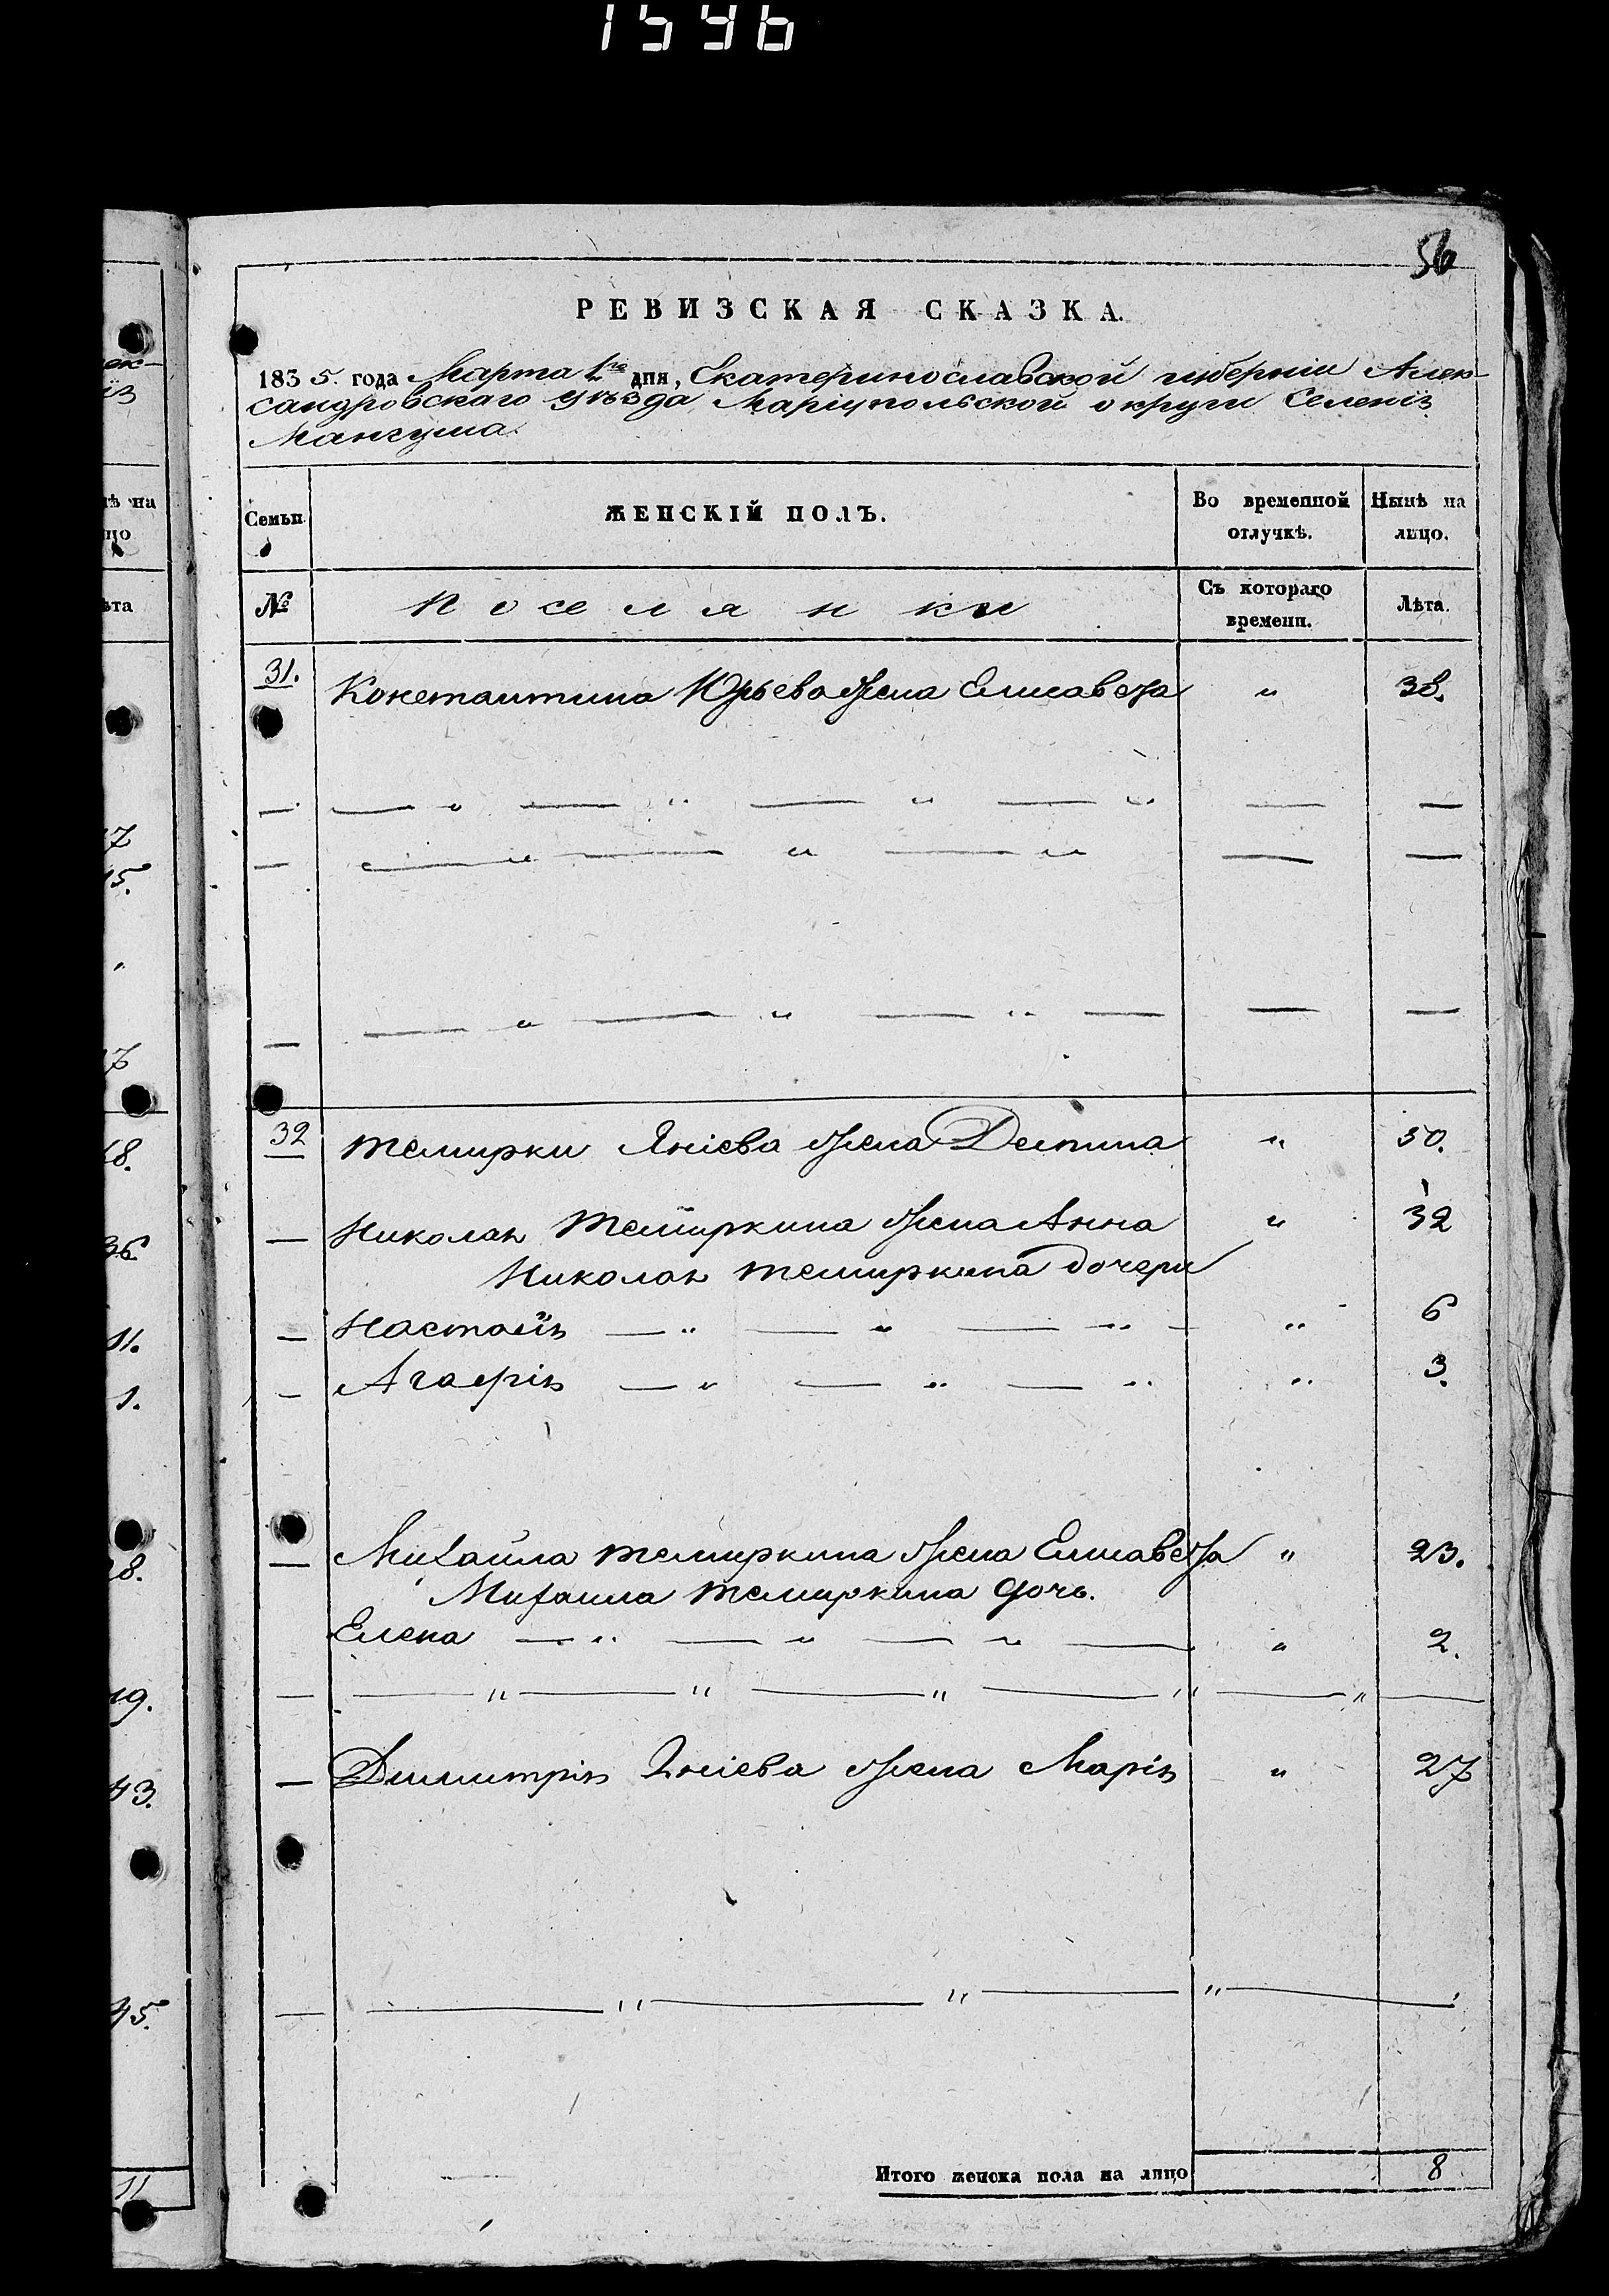 1596
56
РЕВИЗСКАЯ СКАЗКА.
1835. года Марта 1го дня, Екатеринославской губерніи Алек-
сандровскаго уѣзда Маріупольской округи Селенія
Мангуша.
Семьи. ЖЕНСКІЙ ПОЛЪ. Во временной отлучкѣ. Нынѣ на лицо.
№ Поселянки Съ котораго времени. Лѣта.
31. Константина Юрьева жена Елисавета " 38.
— — " — " — " — " — —
— — " — " — " — —
— — " — " — " — — —
32 Темирки Яніева жена Деспина " 50.
— Николая Темиркина жена Анна " 32
Николая Темиркина дочери
— Настасія — " — " — " — " 6
— Агафія — " — " — " " 3.
— Михайла Темиркина жена Елисавета " 23.
Михаила Темиркина дочь.
Елена — " — " — " — " 2.
— — " — " — " — " — " —
— Димитрія Яніева жена Марія " 27
— — " — " — " —
Итого женска пола на лицо 8
ек-
із
ѣ на
цо
ѣта
7
15.
7
18.
36.
11.
1.
28.
19.
43.
45.
11